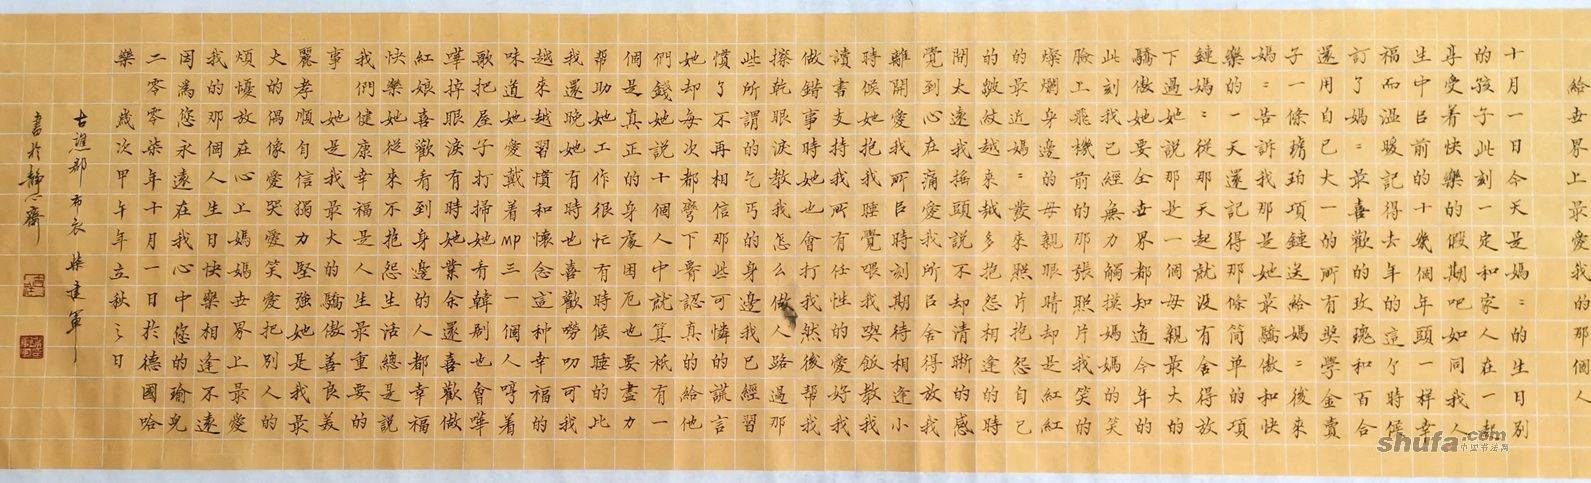 給世界上最愛我的那個人
十月一日今天是媽=的生日別
的孩子此刻一定和家人在一起
享受着快樂的假期吧如同我人
生中已前的十幾個年頭一樣幸
福而溫暖記得去年的這个時候
訂了媽=最喜歡的玫瑰和百合
還用自己大一的所有獎學金賣
子一條琇珀項鏈送給媽=後來
媽=告訴我那是她最驕傲和快
樂的一天還記得那條简单的項
鏈媽=從那天起就沒有舍得放
下過她說是一個母親最大的
驕傲她要全世界都知道今年的
此刻我已經無力觸摸媽媽的笑
臉上飛機前的那張照片我笑的
燦爛身邊的母親眼睛却是紅紅
的最近媽=發來照片抱怨自己
的皺紋越來越多抱怨相逢的時
間太遠我搖頭說不却清晰的感
覺到心在痛愛我所已舍得放我
離開愛我所已時刻期待相逢小
時候她抱我睡覺喂我吃飯教我
讀書支持我所有任性的愛好我
做錯事時她也會打我然後帮我
擦乾眼淚教我怎么做人路過那
些所謂的乞丐的身邊我已經習
慣了不再相信那些可憐的謊言
她却每次都彎下腰認真的給他
們錢她說十個人中就算衹有一
個是真正的身處困厄也要盡力
帮助她工作很忙有時候睡的比
我還晚她有時也喜歡嘮叨可我
越來越習慣和懷念這种幸福的
味道她愛戴着MP三一個人哼着
歌把屋子打掃她看韓剧也會嘩
嘩掉眼淚有時她業余還喜歡做
紅娘喜歡看到身邊的人都幸福
快樂她從來不抱怨生活總是說
我們健康幸福是人生最重要的
事 她是我最大的驕傲善良美
麗孝順自信獨力堅強她是我最
大的偶像愛哭愛笑愛把別人的
煩懮放在心上媽媽世界上最愛
我的那個人生日快樂相逢不遠
因為您永遠在我心中您的瑜兒
二零零柒年十月一日於德國哈
樂 歲次甲午年立秋之日
古譙郡布衣 柴建軍
書於靜心齋
shufa.com
中国书法网